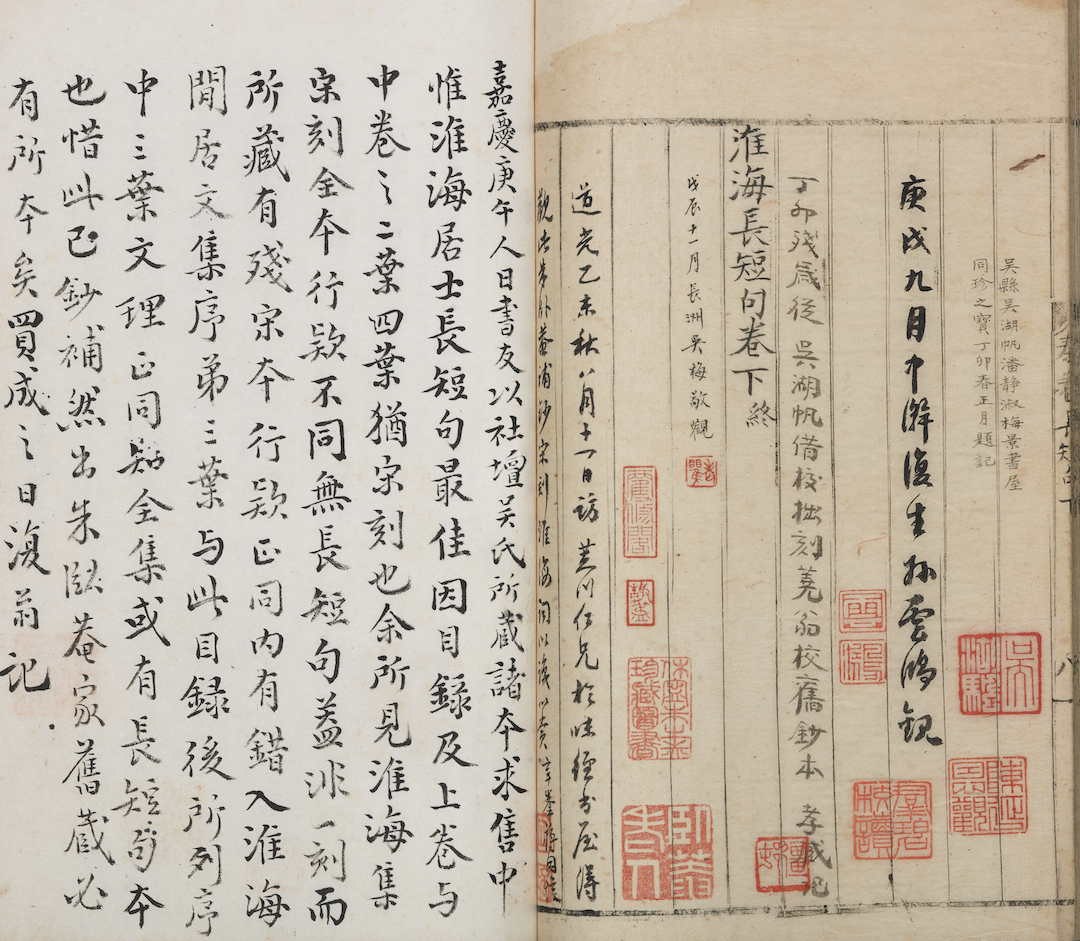 吳縣吳湖帆潘静淑梅景書屋
同珍之寶丁卯春正月題記
庚戌九月中澣生孫雲鴻觀
丁卯殘歲從 吳湖帆借校拙刻蕘翁校舊鈔本 孝臧記
淮海長短句卷下終
戊辰十一月長洲吳梅敬觀
道光乙未秋八月十一日訪芙川仁兄於味經書屋得
觀鈔宋刻淮海詞
雲鴻
嘉慶庚午人日書友以社壇吳氏所藏諸本求售中
惟淮海居士長短句最佳因目錄及上卷与
中卷之二葉四葉猶宋刻也余所見淮海集
宋刻全本行款不同無長短句蓋非一刻而
所藏有殘宋本行款正同内有錯入淮海
閒居文集序第三葉与此目錄後所列序
中三葉文理正同知全集或有長短句本
也惜此已鈔補然出朱臥菴家舊藏必
有所本矣買成之日復翁記